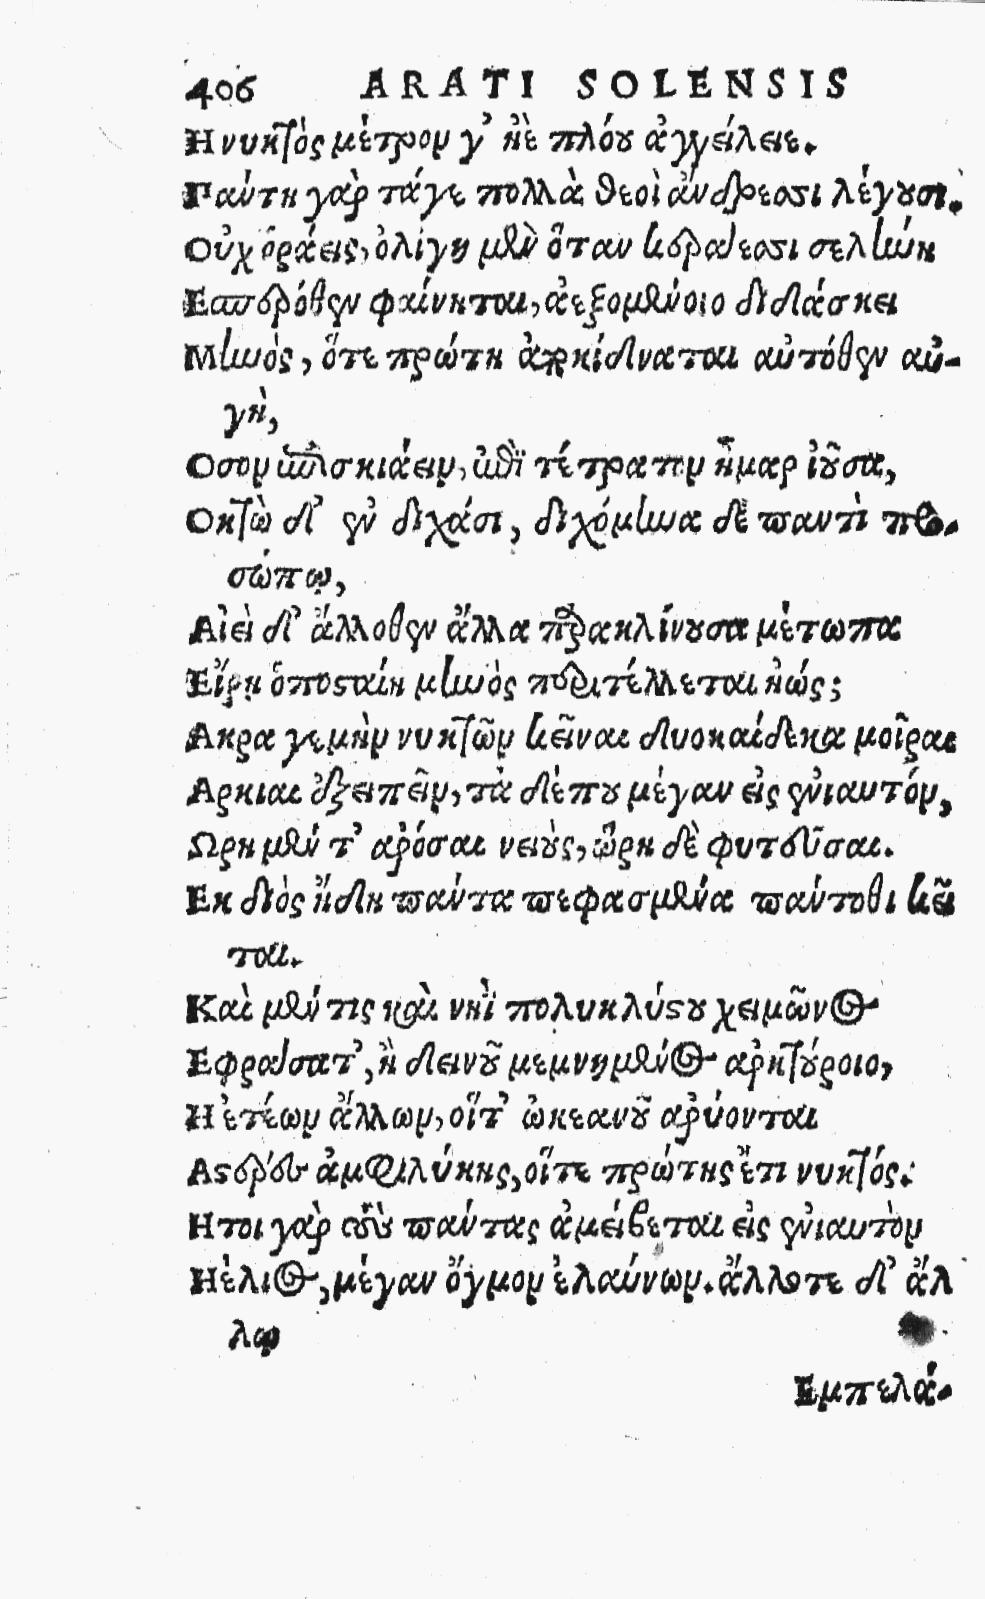 406 ARATI SOLENSIS
Η νυκτὸς μέτρον γ' ἠὲ πλόου ἀγγείλειε.
Πάντη γὰρ τάγε πολλὰ θεοὶ ἄνδρεσσι λέγουσι.
Οὐχ ὁράεις, ὀλίγη μὲν ὅταν κεράεσσι σελήνη
Ἑσπερόθεν φαίνηται, ἀεξομένοιο διδάσκει
Μηνὸς, ὅτε πρώτη ἀποκίδναται αὐτόθεν αὐ-
γὴ,
Οσον ἐπισκιάειν, ἐπὶ τέτρατον ἦμαρ ἰοῦσα,
Οκτὼ δ' ἐν διχάσι, διχόμηνα δὲ παντὶ προ-
σώπῳ,
Αἰεὶ δ' ἄλλοθεν ἄλλα παρακλίνουσα μέτωπα
Εἴρη ὁποσταίη μηνὸς περιτέλλεται ἠώς;
Ακρα γεμὴν νυκτῶν κεῖναι δυοκαίδεκα μοῖραι
Αρκιαι ἐξειπεῖν, τὰ δέπου μέγαν εἰς ἐνιαυτόν,
Ωρη μέν τ' ἀρόσαι νειοὺς, ὥρη δὲ φυτεῦσαι.
Εκ διὸς ἤδη πάντα πεφασμένα πάντοθι κεῖ
ται.
Καὶ μέν τις καὶ νηῒ πολυκλύστου χειμῶνος
Εφράσσατ', ἢ δεινοῦ μεμνημένος ἀρκτούροιο,
Η ἑτέων ἄλλων, οἵτ' ὠκεανοῦ ἀρύονται
Αστέρες ἀμφιλύκης, οἵτε πρώτης ἔτι νυκτός:
Ητοι γὰρ τοὺς πάντας ἀμείβεται εἰς ἐνιαυτὸν
Ηέλιος, μέγαν ὄγμον ἐλαύνων. ἄλλοτε δ' ἄλ
λῳ
Εμπελά-